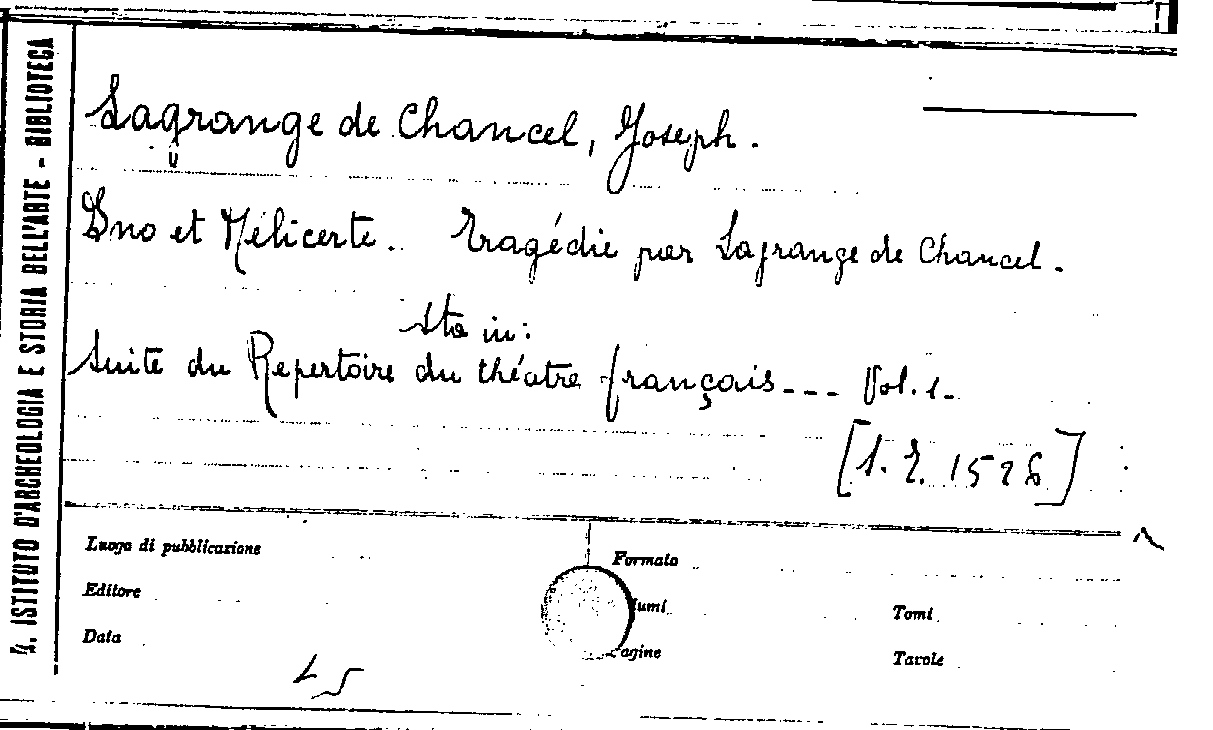 4. ISTITUTO D'ARCHEOLOGIA E STORIA DELL'ARTE - BIBLIOTECA
Lagrange de Chancel, Joseph.
Ino et Mélicerte. Tragédie par Lagrange de Chancel.
Sta in:
Suite du Repertoire du théatre français--- Vol. 1-
[S. R. 1528]
Luogo di pubblicazione
Formato
Editore
lumi
Tomi
Data
agine
Tavole